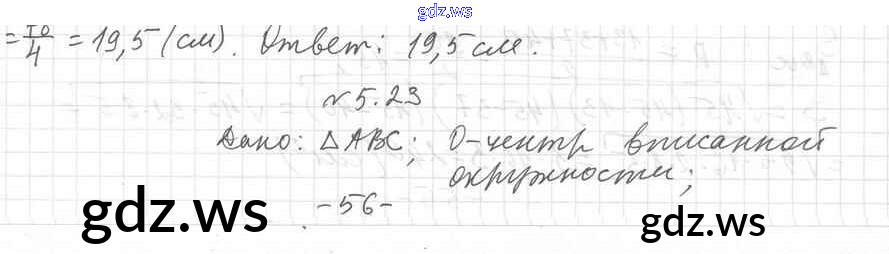 gdz.ws
= 78/4 = 19,5 (см). Ответ: 19,5 см.
№ 5.23
Дано: △ABC; O-центр вписанной
окружности;
-56-
gdz.ws gdz.ws